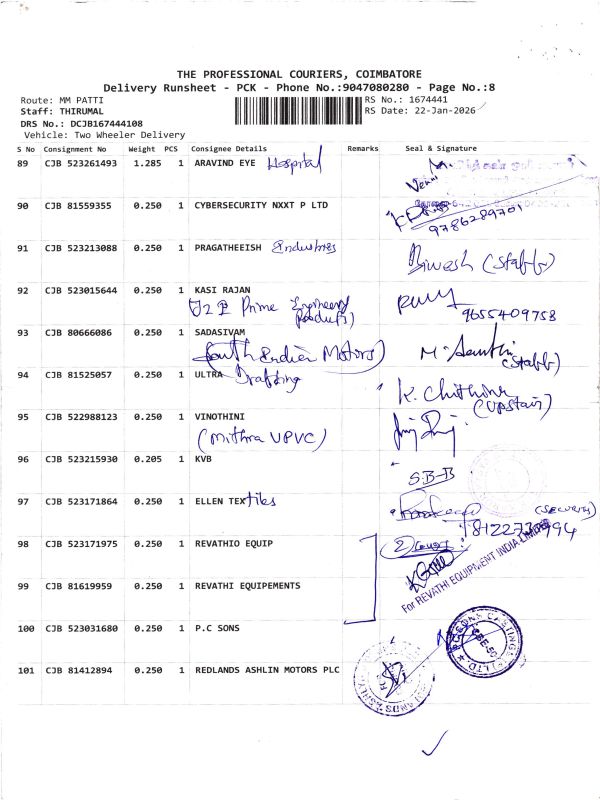 THE PROFESSIONAL COURIERS, COIMBATORE
Delivery Runsheet - PCK - Phone No.:9047080280 - Page No.:8
Route: MM PATTI RS No.: 1674441
Staff: THIRUMAL RS Date: 22-Jan-2026
DRS No.: DCJB167444108
Vehicle: Two Wheeler Delivery
S No Consignment No Weight PCS Consignee Details Remarks Seal & Signature
89 CJB 523261493 1.285 1 ARAVIND EYE Hospital
90 CJB 81559355 0.250 1 CYBERSECURITY NXXT P LTD
9786289701
91 CJB 523213088 0.250 1 PRAGATHEEISH Industries
(Staff)
92 CJB 523015644 0.250 1 KASI RAJAN
Prime Engineering Products) 9655409758
93 CJB 80666086 0.250 1 SADASIVAM
(South Indian Motors) (Staff)
94 CJB 81525057 0.250 1 ULTRA Drafting
K. Chithra (Upstair)
95 CJB 522988123 0.250 1 VINOTHINI
(Mithra UPVC)
96 CJB 523215930 0.205 1 KVB
S.B-B
97 CJB 523171864 0.250 1 ELLEN TEXtiles
(SECURITY)
98 CJB 523171975 0.250 1 REVATHIO EQUIP
For REVATHI EQUIPMENT INDIA LIMITED
99 CJB 81619959 0.250 1 REVATHI EQUIPEMENTS
100 CJB 523031680 0.250 1 P.C SONS
101 CJB 81412894 0.250 1 REDLANDS ASHLIN MOTORS PLC